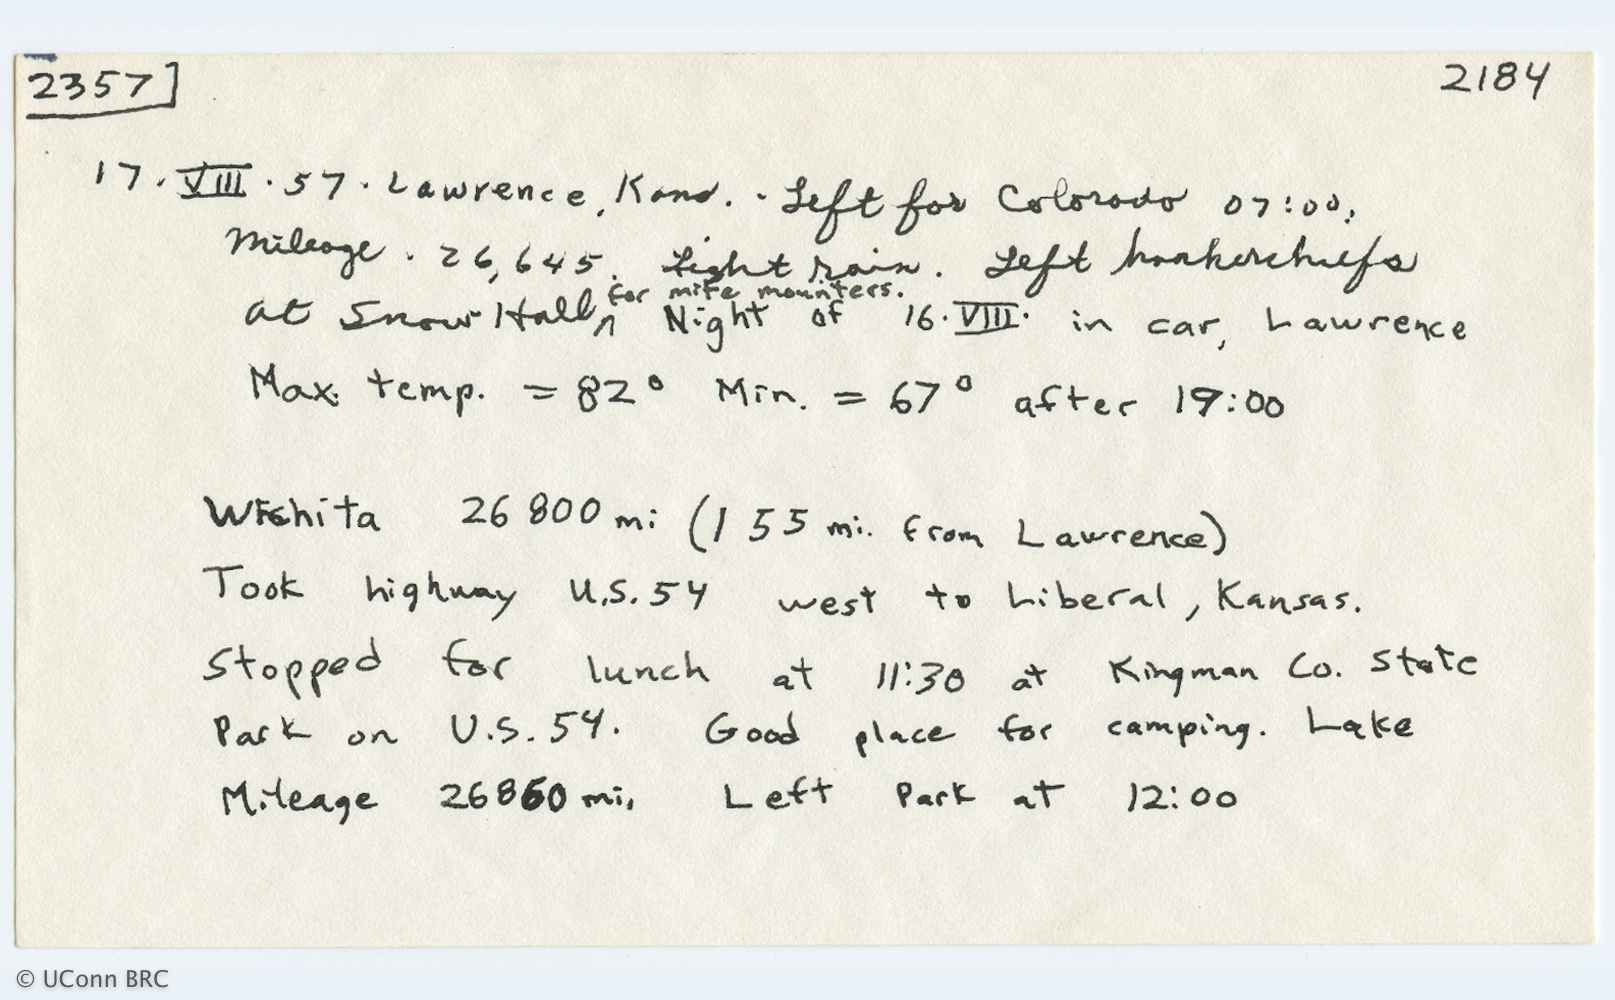 2357] 2184
17.VIII.57. Lawrence, Kans. - Left for Colorado 07:00,
Mileage. 26,645. Light rain. Left hankerchiefs
at Snow Hall ^ for mite mounters. Night of 16.VIII. in car, Lawrence
Max. temp. = 82° Min. = 67° after 19:00
Wichita 26800 mi (155 mi. from Lawrence)
Took highway U.S. 54 west to Liberal, Kansas.
Stopped for lunch at 11:30 at Kingman Co. State
Park on U.S. 54. Good place for camping. Lake
Mileage 26860 mi. Left Park at 12:00
© UConn BRC